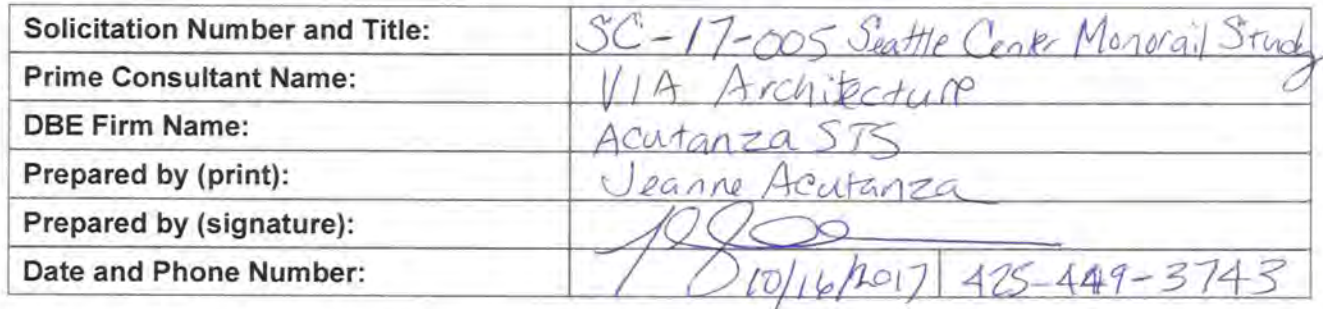 Solicitation Number and Title: SC-17-005 Seattle Center Monorail Study
Prime Consultant Name: VIA Architecture
DBE Firm Name: Acutanza STS
Prepared by (print): Jeanne Acutanza
Prepared by (signature):
Date and Phone Number: 10/16/2017 425-449-3743